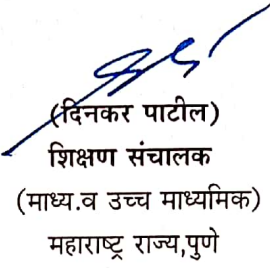 (दिनकर पाटील)
शिक्षण संचालक
(माध्य.व उच्च माध्यमिक)
महाराष्ट्र राज्य,पुणे